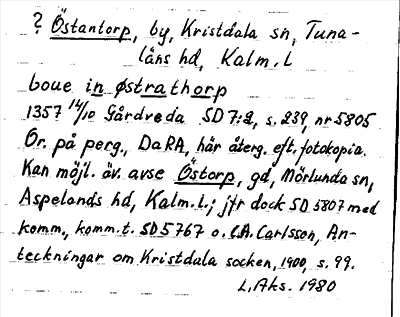 ? Östantorp, by, Kristdala sn, Tuna-
läns hd, Kalm. L
boue in østrathorp
1357 14/10 Gårdveda SD 7:2, s. 239, nr 5805
Or. på perg., DaRA, här återg. eft. fotokopia.
Kan möjl. äv. avse Östorp, gd, Mörlunda sn,
Aspelands hd, Kalm. L.; jfr dock SD 5807 med
komm., komm. t. SD 5767 o. C.A. Carlsson, An-
teckningar om Kristdala socken, 1900, s. 99.
L. Aks. 1980